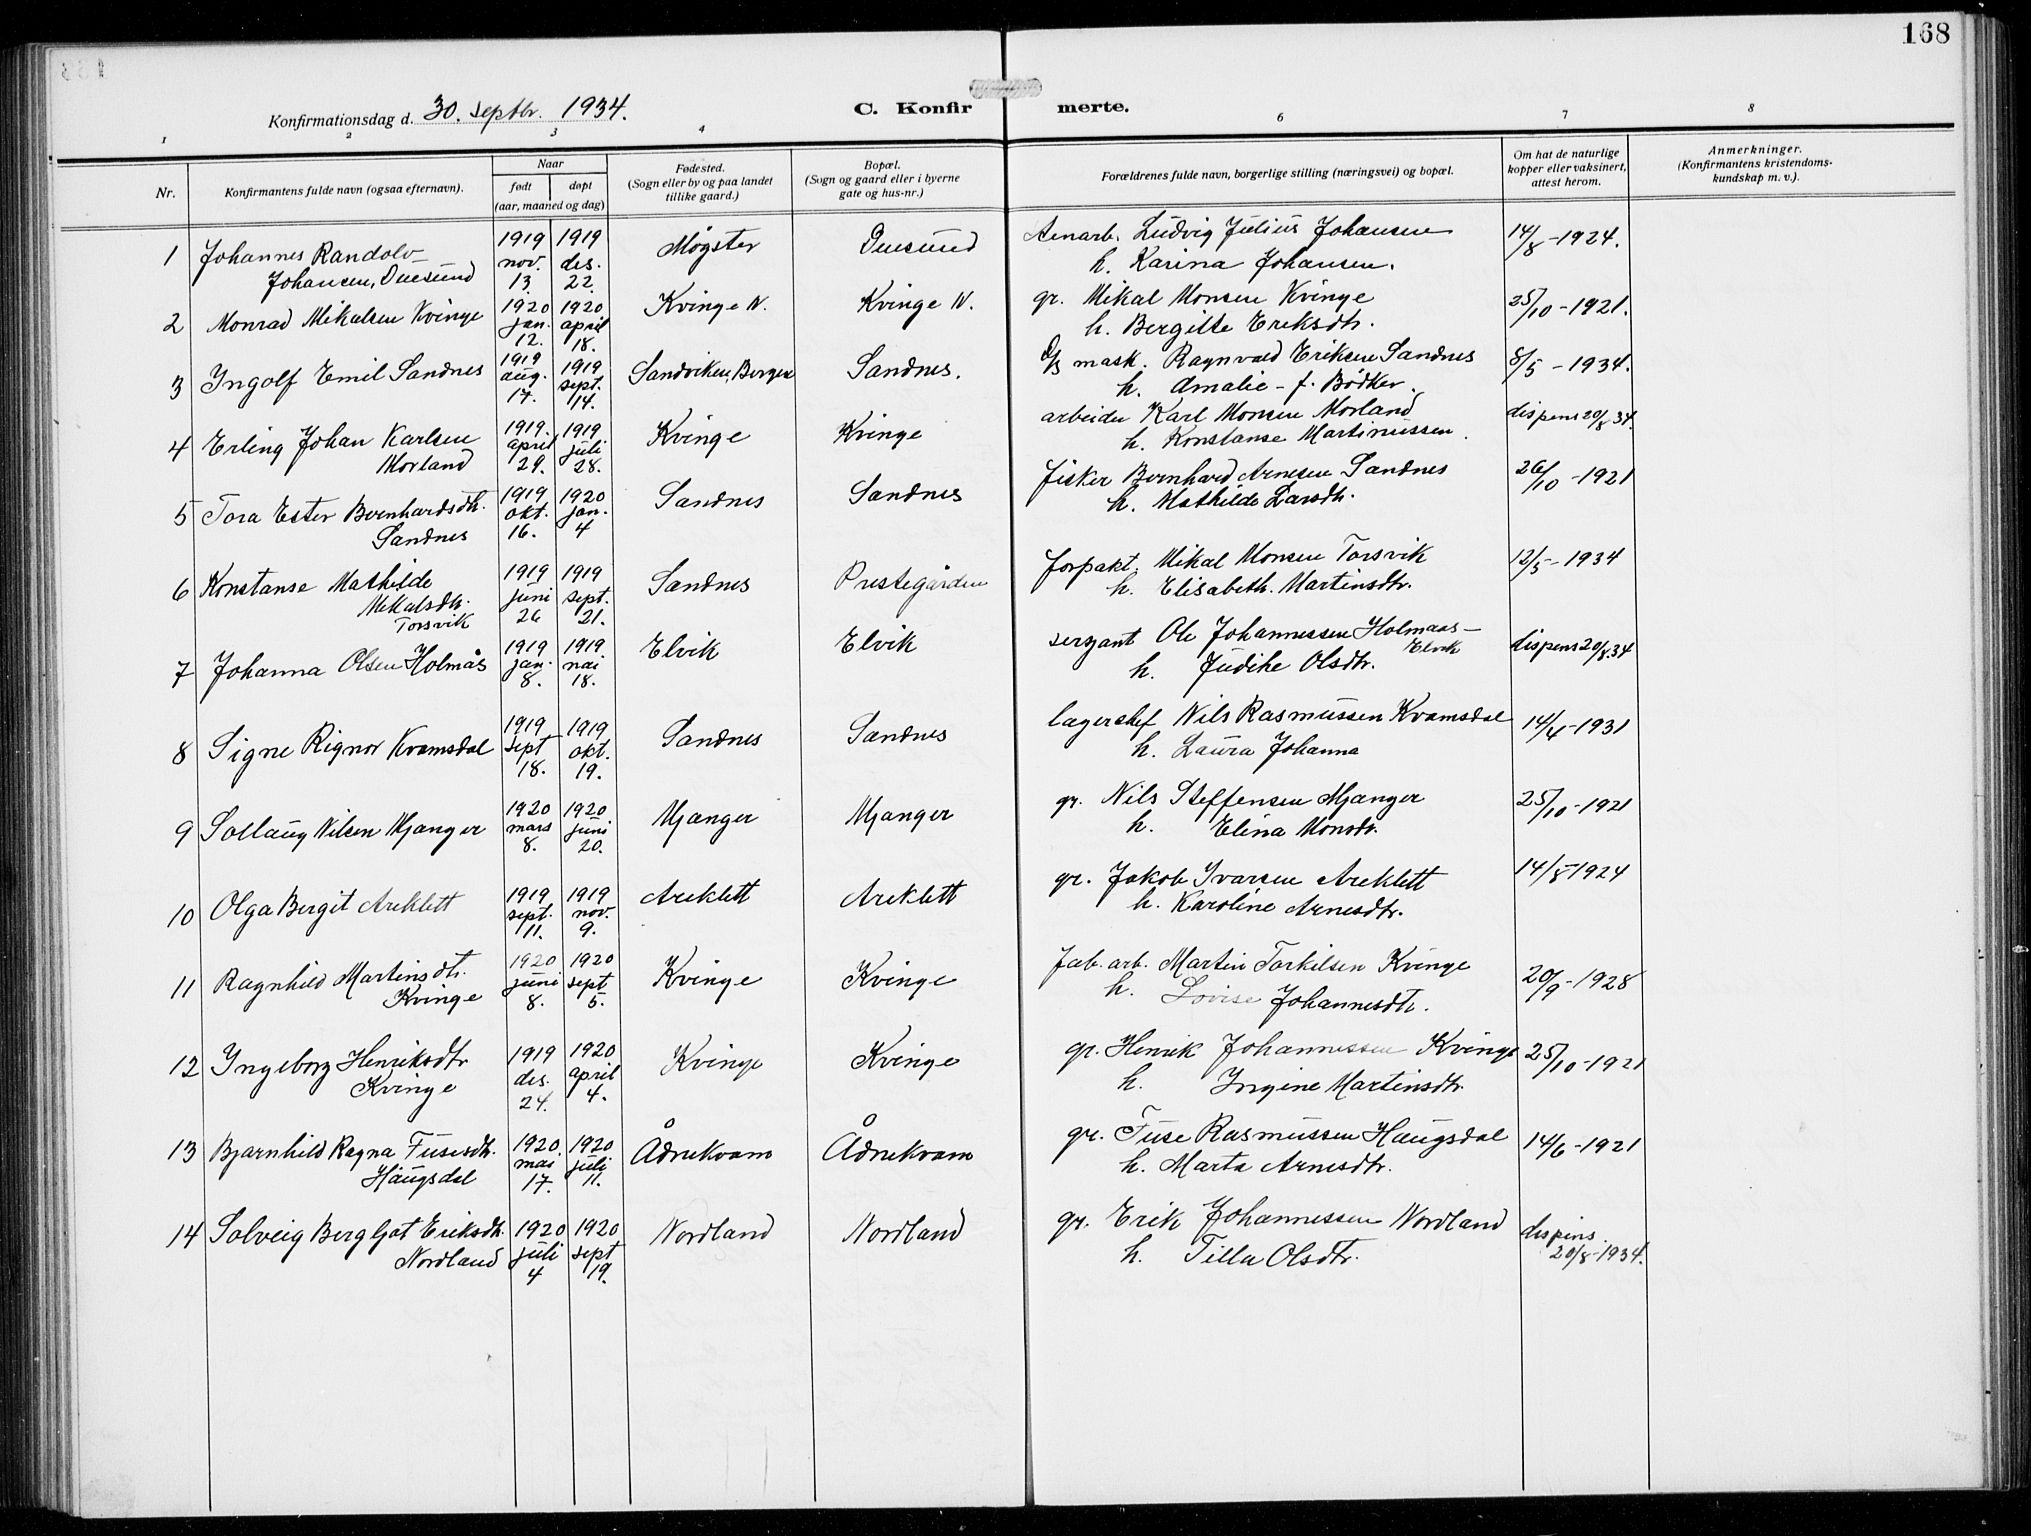 168
Konfirmationsdag d. 30. septbr. 1934.
C. Konfirmerte.
1 2 3 4 6 7 8
Nr.
Konfirmantens fulde navn (ogsaa efternavn).
Naar
født døpt
(aar, maaned og dag)
Fødested.
(Sogn eller by og paa landet
tillike gaard.)
Bopæl.
(Sogn og gaard eller i byerne
gate og hus-nr.)
Forældrenes fulde navn, borgerlige stilling (næringsvei) og bopæl.
Om hat de naturlige
kopper eller vaksinert,
attest herom.
Anmerkninger.
(Konfirmantens kristendoms-
kundskap m. v.).
1 Johannes Randolv Johansen, Duesund 1919 nov. 13. 1919 des. 22. Møgster Duesund Ludvig Julius Johansen 14/8-1924.
h. Karina Johansen.
2 Monrad Mikalsen Kvinge 1920 jan. 12. 1920 april 18. Kvinge N. Kvinge N. gr. Mikal Monsen Kvinge 25/10-1921.
h. Bergitte Eriksdtr.
3 Ingolf Emil Sandnes 1919 aug. 17. 1919 sept. 14. Sandviken, Bergen Sandnes. mask. Ragnvald Eriksen Sandnes 8/5-1934.
h. Amalie - f. Bødker.
4 Erling Johan Karlsen Morland 1919. april 29. 1919 juli 28. Kvinge Kvinge arbeider Karl Monsen Morland dispens 20/8 34.
h. Konstanse Martinussen.
5 Tora Ester Bernhardsdtr. Sandnes 1919 okt. 16. 1920 jan. 4 Sandnes Sandnes fisker Bernhard Arnesen Sandnes 26/10-1921
h. Mathilde Larsdtr.
6 Konstanse Mathilde Mikalsdtr. Torsvik 1919 juni 26 1919 sept. 21. Sandnes Prestegården forpakt. Mikal Monsen Torsvik 12/5-1934
h. Elisabeth. Martinsdtr.
7 Johanna Olsen Holmås 1919 jan. 8. 1919. mai 18. Elvik Elvik sersjant Ole Johannessen Holmaas- Elvik dispens 20/8. 34
h. Judike Olsdtr.
8 Signe Rignor Kvamsdal 1919 sept 18. 1919 okt. 19. Sandnes Sandnes lagerchef Nils Rasmussen Kvamsdal 14/4-1931
h. Laura Johanna
9 Sollaug Nilsen Mjanger 1920 mars 8. 1920 juni 20. Mjanger Mjanger gr. Nils Steffensen Mjanger 25/10-1921
h. Elina Monsdtr.
10 Olga Bergit Areklett 1919 sept. 11. 1919 nov. 9. Areklett Areklett gr. Jakob Ivarsen Areklett 14/8-1924
h. Karoline Arnesdtr.
11 Ragnhild Martinsdtr. Kvinge 1920 juni 8. 1920 sept 5. Kvinge Kvinge fab. arb. Martin Torkilsen Kvinge 20/9-1928
h. Lovise Johannesdtr.
12 Ingeborg Henriksdtr Kvinge 1919 des. 24. 1920 april 4. Kvinge Kvinge gr. Henrik Johannessen Kvinge 25/10-1921
h. Ingine Martinsdtr.
13 Bjarnhild Ragna Fusesdtr. Haugsdal 1920. mai 17. 1920 juli 11. Ådnekvam Ådnekvam gr. Fuse Rasmussen Haugsdal 14/6-1921
h. Marta Arnesdtr.
14 Solveig Bergljot Eriksdtr. Nordland 1920 juli 4 1920 sept 19. Nordland Nordland gr. Erik Johannessen Nordland dispens. 20/8-1934.
h. Tilla Olsdtr.